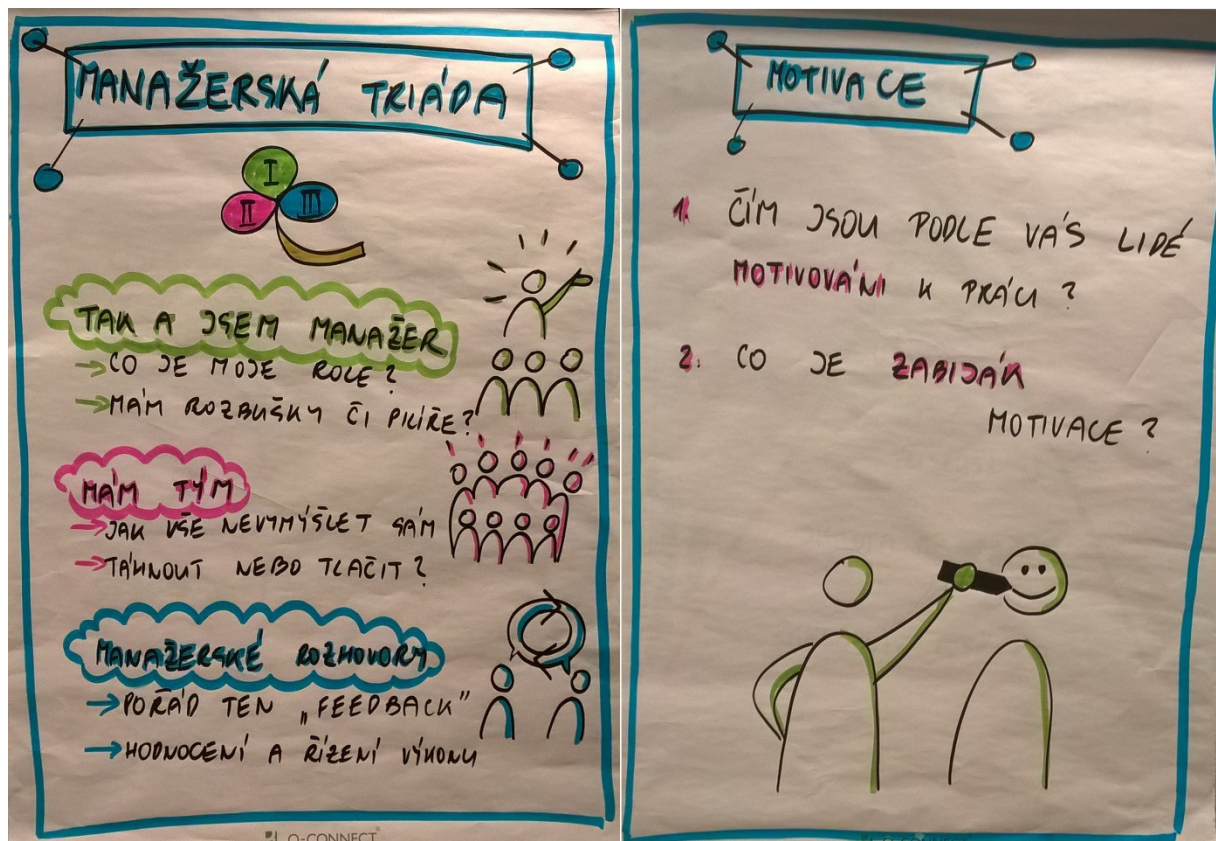 MANAŽERSKÁ TRIÁDA
I
II
III
TAK A JSEM MANAŽER
→ CO JE MOJE ROLE?
→ MÁM ROZBUŠKY ČI PILÍŘE?
MÁM TÝM
→ JAK VŠE NEVYMÝŠLET SÁM
→ TÁHNOUT NEBO TLAČIT?
MANAŽERSKÉ ROZHOVORY
→ POŘÁD TEN „FEEDBACK"
→ HODNOCENÍ A ŘÍZENÍ VÝKONU
Q-CONNECT
MOTIVACE
1. ČÍM JSOU PODLE VÁS LIDÉ
MOTIVOVÁNI K PRÁCI?
2. CO JE ZABIJÁK
MOTIVACE?